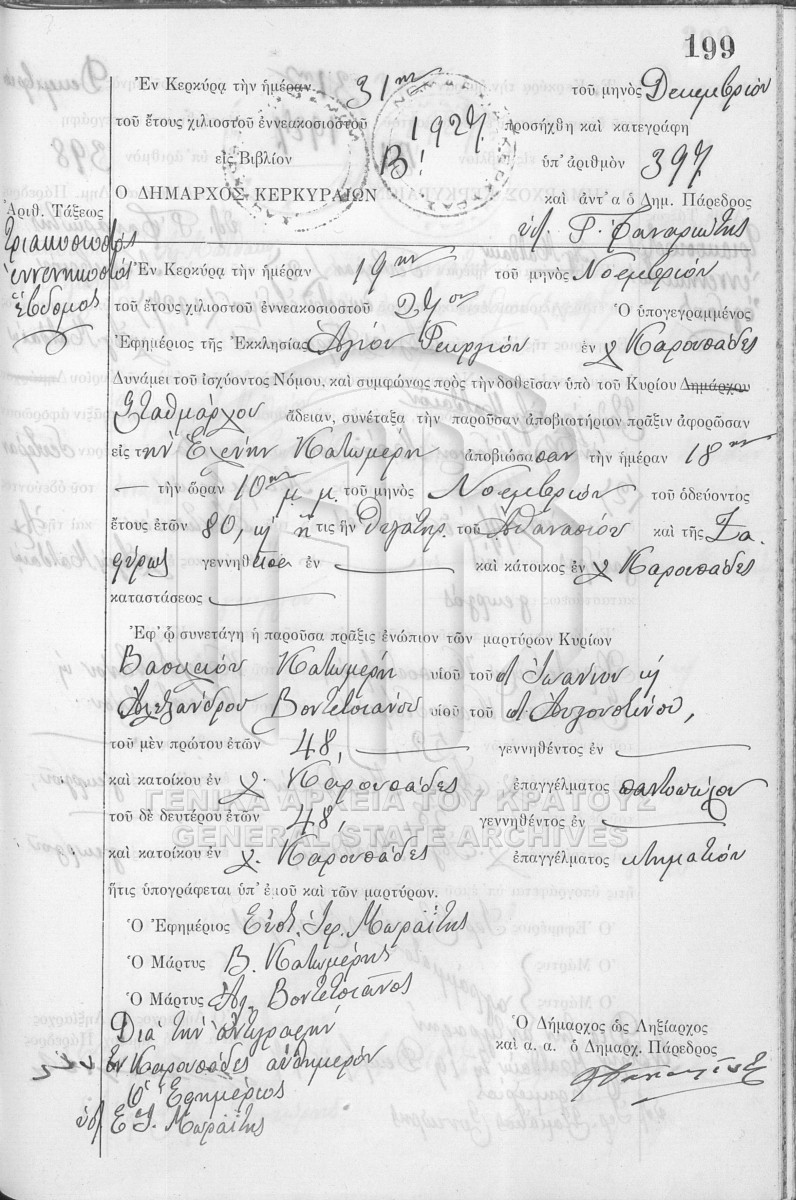 199
Ἐν Κερκύρᾳ τὴν ἡμέραν 31ην τοῦ μηνὸς Δεκεμβρίου
τοῦ ἔτους χιλιοστοῦ ἐννεακοσιοστοῦ 1927 προσήχθη καὶ κατεγράφη
εἰς Βιβλίον Β! ὑπ' ἀριθμὸν 397
Ο ΔΗΜΑΡΧΟΣ ΚΕΡΚΥΡΑΙΩΝ καὶ ἀντ' α ὁ Δημ. Πάρεδρος
Ἀριθ. Τάξεως
Τριακοσιοστὸς
ἐννενηκοστὸς
ἕβδομος
Ἐν Κερκύρᾳ τὴν ἡμέραν 19ην τοῦ μηνὸς Νοεμβρίου
τοῦ ἔτους χιλιοστοῦ ἐννεακοσιοστοῦ 27ου Ὁ ὑπογεγραμμένος
Ἐφημέριος τῆς Ἐκκλησίας Ἁγίου Γεωργίου ἐν χ Καρουσάδες
Δυνάμει τοῦ ἰσχύοντος Νόμου, καὶ συμφώνως πρὸς τὴν δοθεῖσαν ὑπὸ τοῦ Κυρίου Δημάρχου
Σταθμάρχου ἄδειαν, συνέταξα τὴν παροῦσαν ἀποβιωτήριον πρᾶξιν ἀφορῶσαν
εἰς τὴν Ἑλένην Κατωμέρη ἀποβιώσασαν τὴν ἡμέραν 18ην
τὴν ὥραν 10ην μ. μ. τοῦ μηνὸς Νοεμβρίου τοῦ ὁδεύοντος
ἔτους ἐτῶν 80, ἥ τις ἦν θυγάτηρ τοῦ Ἀθανασίου καὶ τῆς Ζα.
φύρως γεννηθεῖσα ἐν καὶ κάτοικος ἐν χ Καρουσάδες
καταστάσεως
Ἐφ' ᾧ συνετάγη ἡ παροῦσα πρᾶξις ἐνώπιον τῶν μαρτύρων Κυρίων
Βασιλείου Κατωμέρη υἱοῦ τοῦ Ἰωάννου κ
Ἀλεξάνδρου Βοντετσιάνου υἱοῦ τοῦ Αὐγουστίνου,
τοῦ μὲν πρώτου ἐτῶν 48, γεννηθέντος ἐν
καὶ κατοίκου ἐν χ Καρουσάδες ἐπαγγέλματος παντοπώλου
ΓΕΝΙΚΑ ΑΡΧΕΙΑ ΤΟΥ ΚΡΑΤΟΥΣ
τοῦ δὲ δευτέρου ἐτῶν 48, γεννηθέντος ἐν
GENERAL STATE ARCHIVES
καὶ κατοίκου ἐν χ. Καρουσάδες ἐπαγγέλματος κτηματίου
ἥτις ὑπογράφεται ὑπ' ἐμοῦ καὶ τῶν μαρτύρων.
Ὁ Ἐφημέριος Εὐστ. Ἱερ. Μωραΐτης
Ὁ Μάρτυς Β. Κατωμέρης
Ὁ Μάρτυς Ἀλ. Βοντετσιᾶνος
Διὰ τὴν ἀντιγραφὴν
Ἐν Καρουσάδες αὐθημερόν
Ὁ Ἐφημέριος
Ε. Ἰ. Μωραΐτης
Ὁ Δήμαρχος ὡς Ληξίαρχος
καὶ α. α. ὁ Δημαρχ. Πάρεδρος